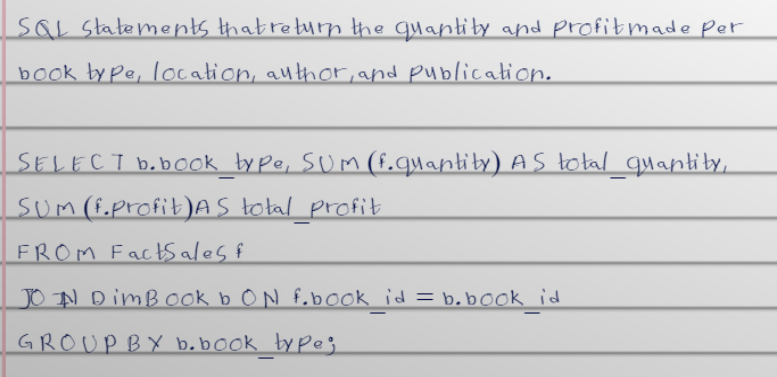 SQL statements that return the quantity and profit made per
book type, location, author, and publication.
SELECT b.book_type, SUM (f.quantity) AS total_quantity,
SUM (f.profit) AS total_profit
FROM FactSales f
JOIN DimBook b ON f.book_id = b.book_id
GROUP BY b.book_type;